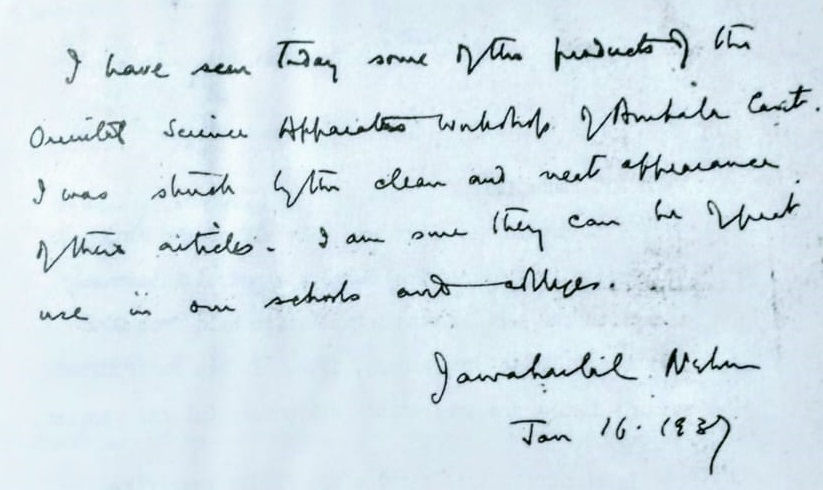 I have seen today some of the products of the
Oriental Science Apparatus Workshop of Ambala Cantt.
I was struck by the clean and neat appearance
of these articles. I am sure they can be of great
use in our schools and colleges.
Jawaharlal Nehru
Jan 16. 1937